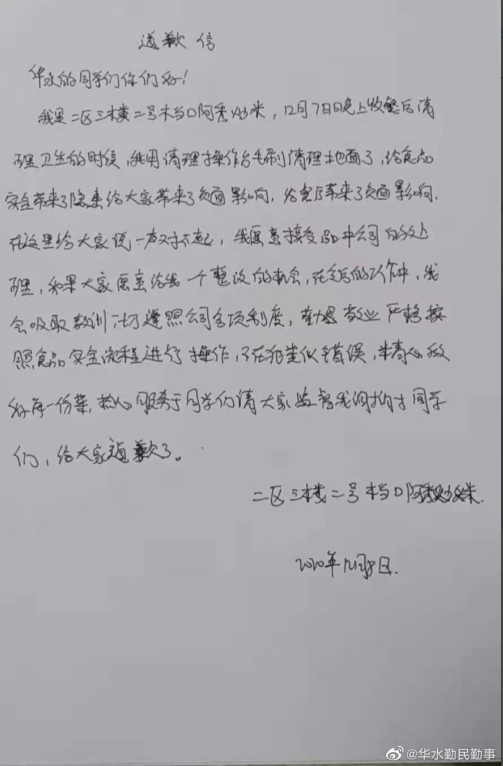 道歉信
华水的同学们你们好！
我是二区三楼二号档口阿秀炒米，12月7日晚上收餐后清
理卫生的时候，我用清理操作台毛刷清理地面了，给食品
安全带来了隐患给大家带来了负面影响，给党带来了负面影响.
在这里给大家说一声对不起，我愿意接受品中公司的处
理，如果大家愿意给我一个整改的机会，在今后的工作中，我
会吸取教训一切遵照公司各项制度，敬业严格按
照食品安全流程进行操作，不在犯类似错误，做
好每一份菜，热心服务于同学们请大家监督我同学
们，给大家道歉了。
二区三楼二号档口阿秀炒米
2020年12月8日.
@华水勤民勤事